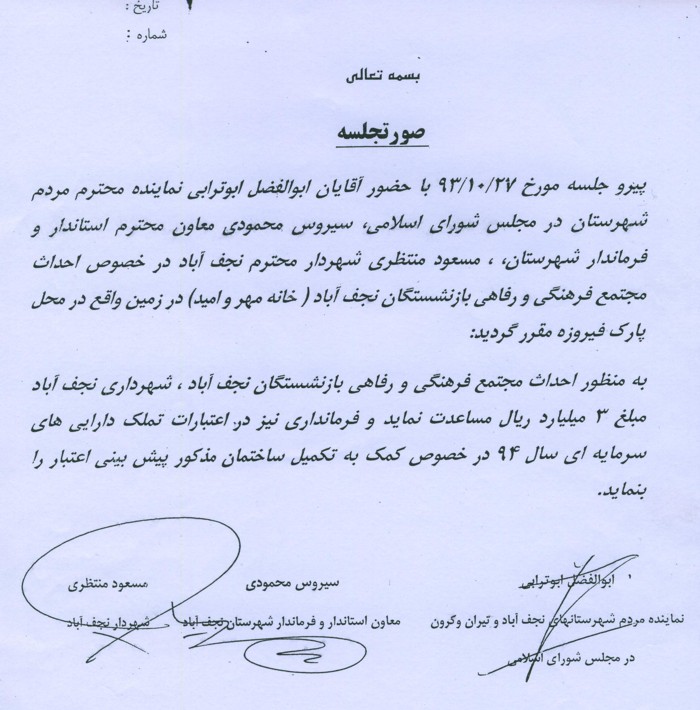 تاریخ :
شماره :
بسمه تعالی
صورتجلسه
پیرو جلسه مورخ ۹۳/۱۰/۲۷ با حضور آقایان ابوالفضل ابوترابی نماینده محترم مردم
شهرستان در مجلس شورای اسلامی، سیروس محمودی معاون محترم استاندار و
فرماندار شهرستان، ، مسعود منتظری شهردار محترم نجف آباد در خصوص احداث
مجتمع فرهنگی و رفاهی بازنشستگان نجف آباد ( خانه مهر و امید) در زمین واقع در محل
پارک فیروزه مقرر گردید:
به منظور احداث مجتمع فرهنگی و رفاهی بازنشستگان نجف آباد ، شهرداری نجف آباد
مبلغ ۳ میلیارد ریال مساعدت نماید و فرمانداری نیز در اعتبارات تملک دارایی های
سرمایه ای سال ۹۴ در خصوص کمک به تکمیل ساختمان مذکور پیش بینی اعتبار را
بنماید.
ابوالفضل ابوترابی
نماینده مردم شهرستانهای نجف آباد و تیران وکرون
در مجلس شورای اسلامی
سیروس محمودی
معاون استاندار و فرماندار شهرستان نجف آباد
مسعود منتظری
شهردار نجف آباد